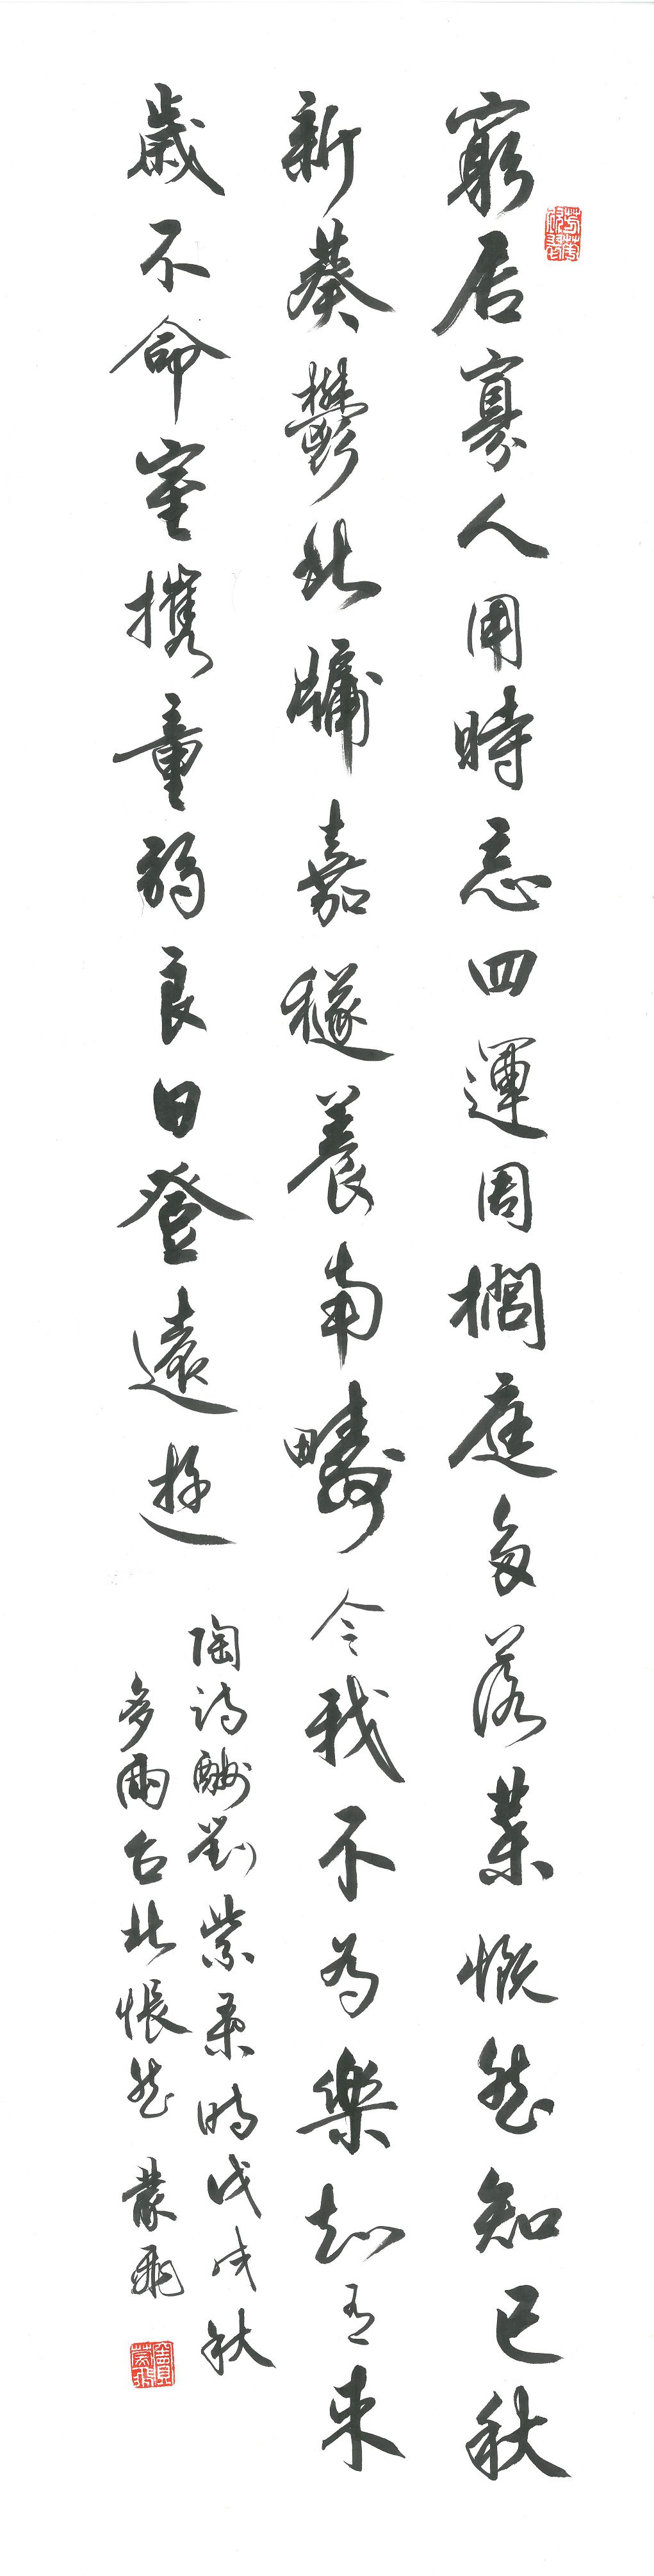 窮居寡人用時忘四運周櫚庭多落葉慨然知已秋
新葵鬱北牖嘉穟養南疇今我不為樂知有來
歲不命室攜童弱良日登遠遊
陶詩酬劉柴桑時戊戌秋
多雨台北悵然